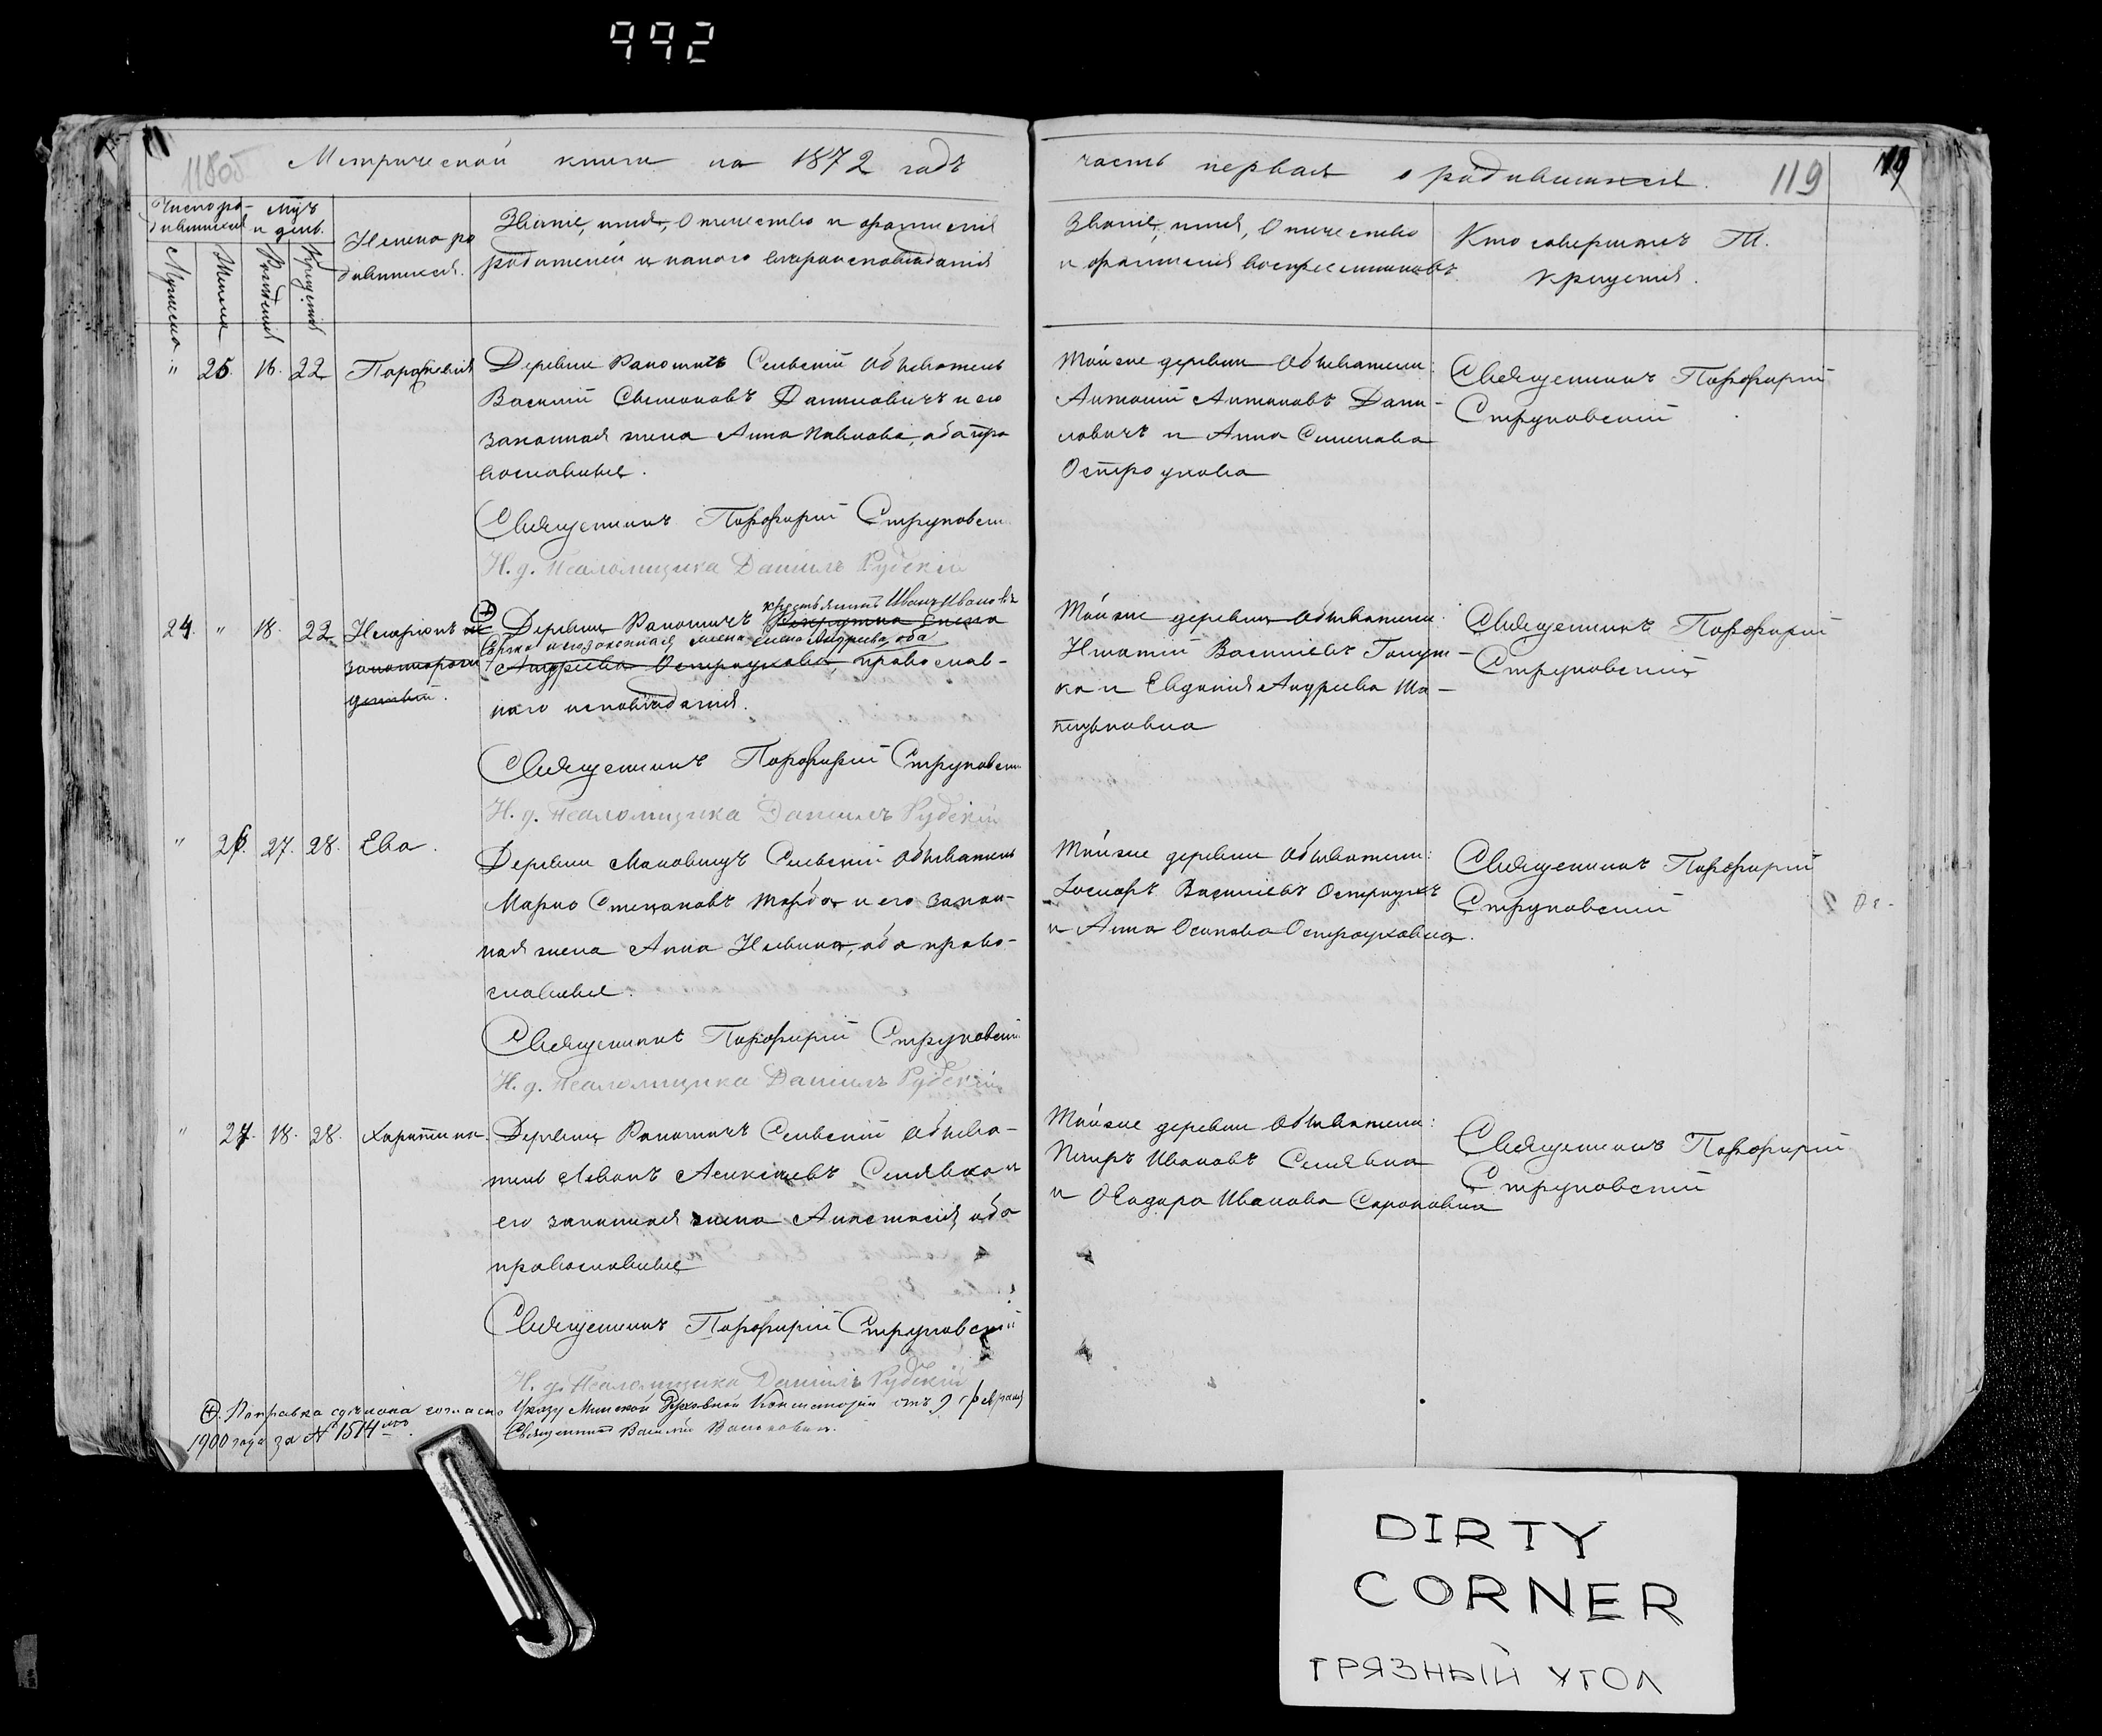 992
118об
Метрической книги на 1872 годъ
часть первая о родившихся.
119
119
Число родившихся
Мѣс. и день.
Мужеска
Женска
Рожденія
Крещенія
Имена ро
дившихся.
Званіе, имя, отчество и фамилія
родителей и какого вѣроисповѣданія
Званіе, имя, отчество
и фамилія воспреемниковъ.
Кто совершалъ Т.
крещенія.
" 25. 16. 22 Параскевія
Деревни Рапотичъ Сельскій обыватель
Василій Симоновъ Даниловичъ и его
законная жена Анна Павлова, оба пра
вославные.
Священникъ Порфирій Струковскій
И. д. Псаломщика Даніилъ Рубскій
Той же деревни обыватели:
Антоній Антоновъ Дани-
ловичъ и Анна Семенова
Остроухова
Священникъ Порфирій
Струковскій
24. " 18. 22 Иларіонъ не
законорож
денный.
крестьянинъ Иванъ Ивановъ
Деревни Рапотичъ Рекрутка Елена
и его законная жена Елена Андреева, оба
Андреева Остроухова, православ-
наго исповѣданія.
Священникъ Порфирій Струковскій
И. д. Псаломщика Даніилъ Рубскій
Той же деревни обыватели:
Игнатій Васильевъ Голуш-
ка и Евдокія Андреева
Священникъ Порфирій
Струковскій
" 26. 27. 28. Ева.
Деревни Маковичъ Сельскій обыватель
Марко Степановъ и его закон-
ная жена Анна Ильина, оба право-
славные.
Священникъ Порфирій Струковскій
И. д. Псаломщика Даніилъ Рубскій
Той же деревни обыватели:
Іосифъ Васильевъ Остроухъ
и Анна Осипова Остроуховна.
Священникъ Порфирій
Струковскій
" 27. 18. 28. Харитина.
Деревни Рапотичъ Сельскій обыва-
тель Леонъ Алексѣевъ Селявко и
его законная жена Анастасія, оба
православные
Священникъ Порфирій Струковскій
И. д. Псаломщика Даніилъ Рубскій
Той же деревни обыватели:
Петръ Ивановъ Селявка
и Ѳеодора Иванова Сороковна
Священникъ Порфирій
Струковскій
Поправка сдѣлана согласно Указу Минской Духовной Консисторіи отъ 9 февраля
1900 года за № 1514
Священникъ Василій
DIRTY
CORNER
ГРЯЗНЫЙ УГОЛ